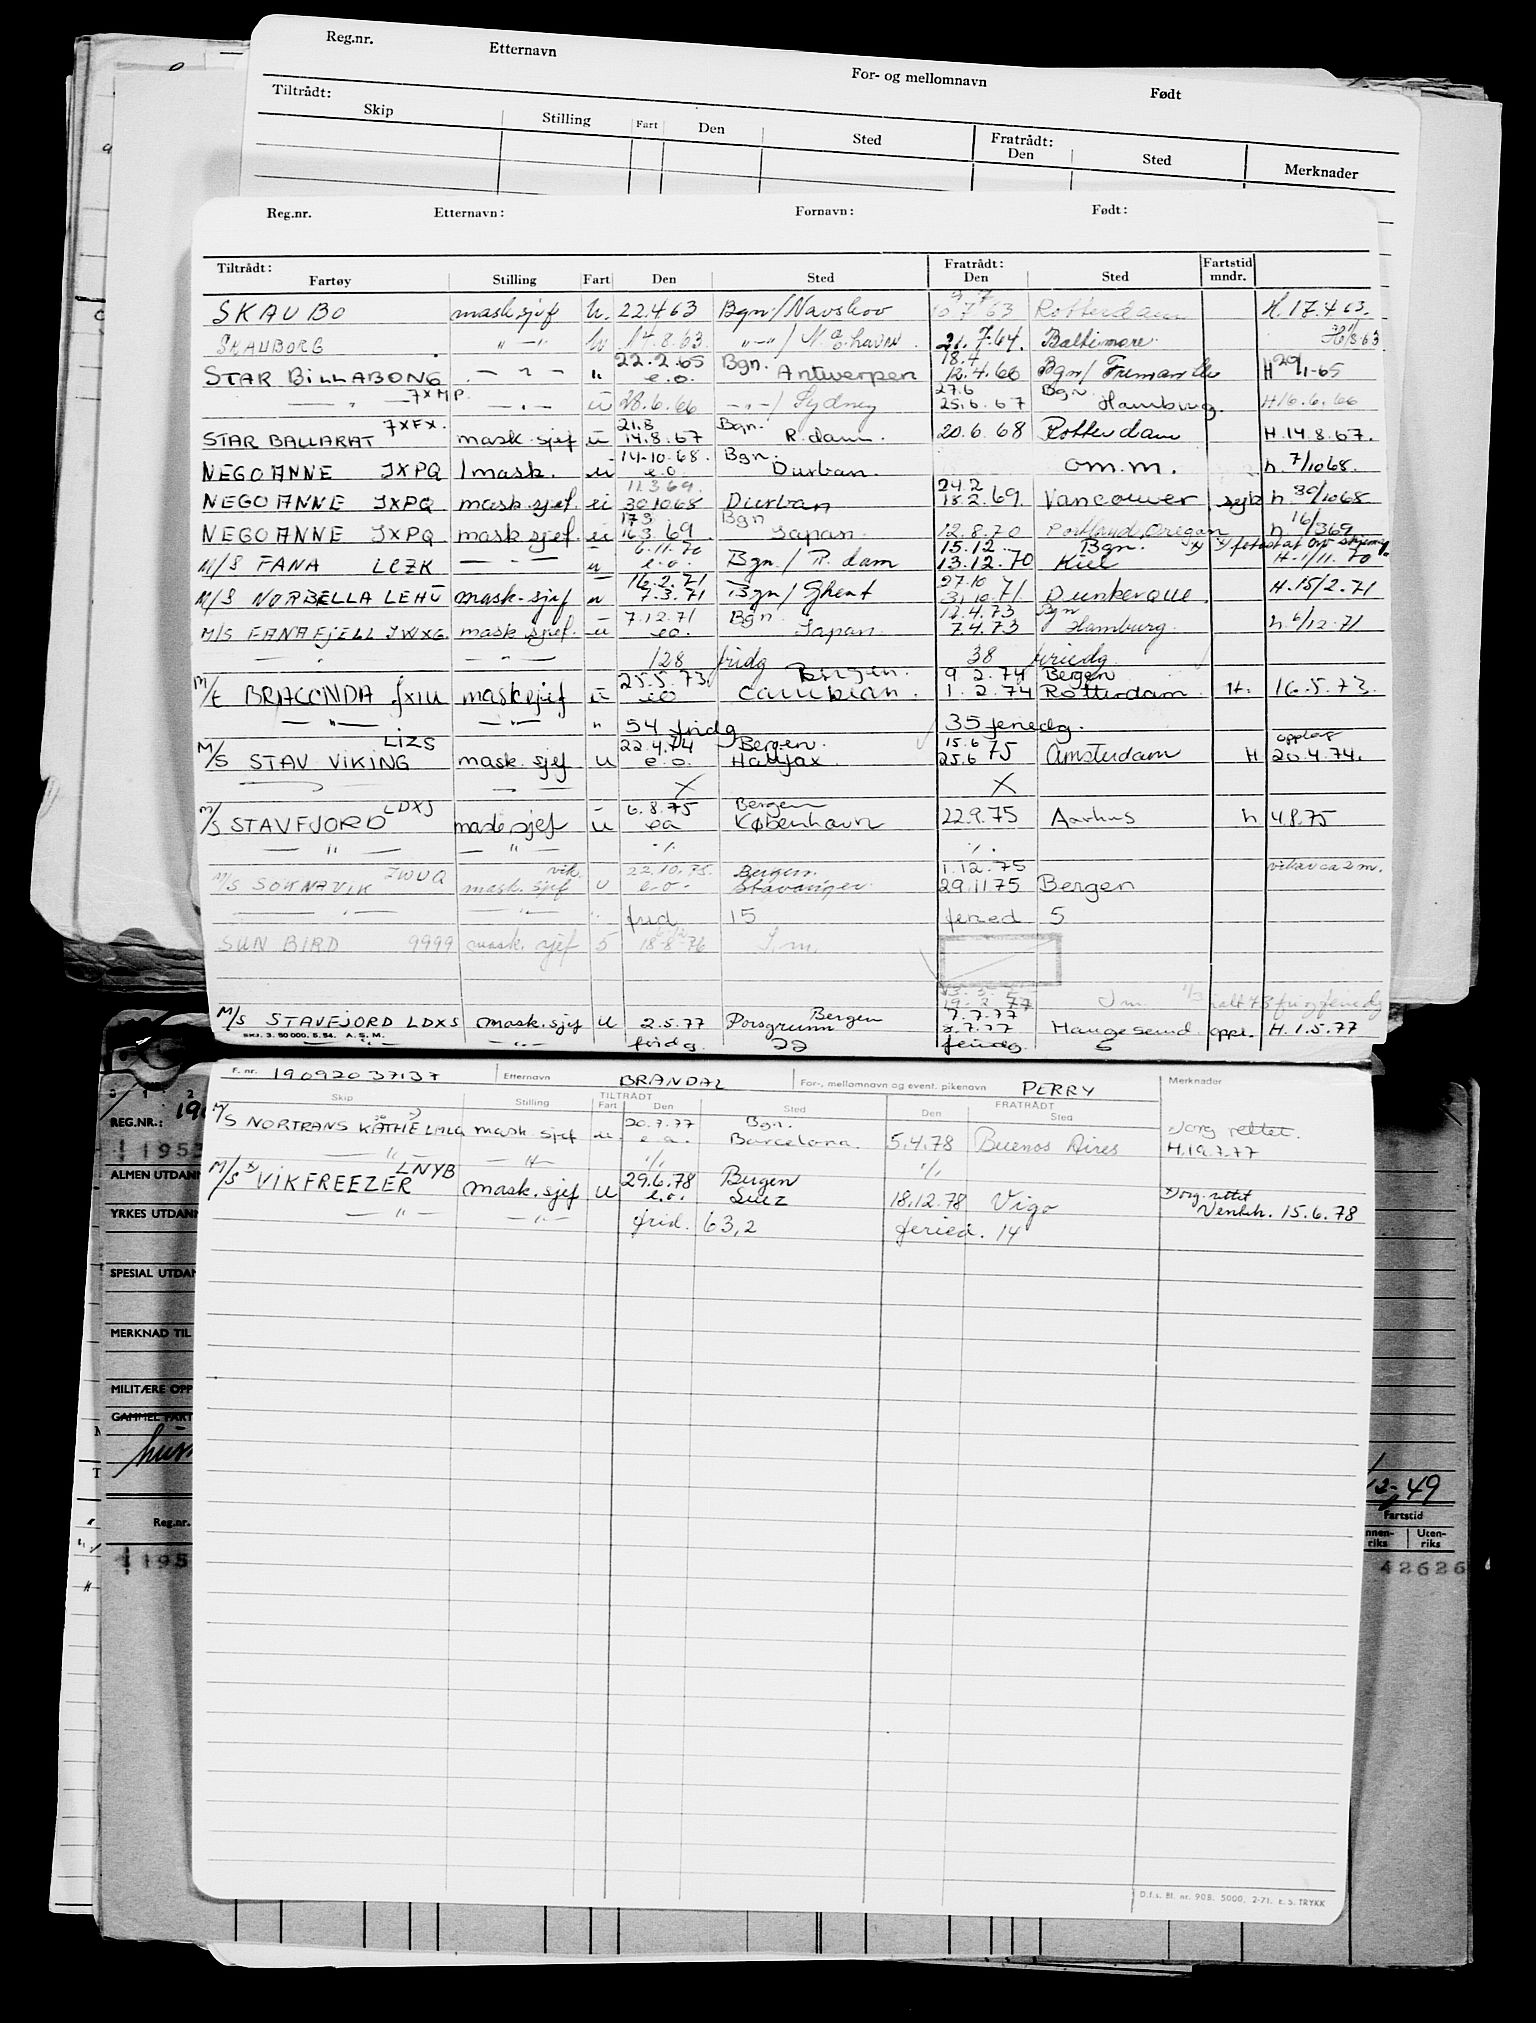 Reg.nr. Etternavn For- og mellomnavn Født
Tiltrådt: Skip Stilling Fart Den Sted Fratrådt: Den Sted Merknader
Reg.nr. Etternavn: Fornavn: Født:
Tiltrådt: Fratrådt: Fartstid
Fartøy Stilling Fart Den Sted Den Sted mndr.
SKAUBO mask.sjef u. 22.4.63 Bgn/Navskov 7 63 Rotterdam H. 17.4.63.
SKAUBORG " -" u 14.8.63. "-"/ N. E. havn 21.7.64. Baltimore
22.2.65 Bgn. 18.4
STAR BILLABONG — " — " e.o. Antwerpen 12.4.66 Bgn/ Fremantle H 29/1-65
7XMP. 27.6 Bgn.
— " — — " — u 28.6.66 -"-/ Sydney 25.6.67 Hamburg. H 16.6.66
7XFX. 21.8 Bgn.
STAR BALLARAT mask.sjef u 14.8.67 R.dam. 20.6.68 Rotterdam H.14.8.67.
14-10.68. Bgn.
NEGO ANNE JXPQ 1 mask. u e.o Durban. om.m. h. 7/1068.
11.3.69. 24.2
NEGO ANNE JXPQ mask.sjef. u 301068 Durban 18.2.69. Vancouver syk h. 30/1068
173 Bgn
NEGO ANNE JXPQ mask sjef. u 163.69. Japan. 12.8.70 Portland, Oregon h 16/369
6.11.70 15.12. Bgn.
M/S FANA LEZK — " — u e.o. Bgn./ R.dam 13.12.70 Kiel H. 1/11.70
16.2.71 27.10
M/S NORBELLA LEHU mask.sjef u 7.3.71 Bgn/ Ghent 3.10.71 Dunkerque. H.15/2.71
7.12.71 Bgn 12.4.73 Bgn
M/S FANAFJELL JWXG. mask sjef. u eo. Japan. 7.4.73 Hamburg. h.6/12.71
— " — — " — 128 fridg 38 feriedg.
25.5.73. Bergen. 9 2.74 Bergen
M/T BRACONDA JXIU mask.sjef u eo Caribian. 1.2.74 Rotterdam H. 16.5.73.
— " — — " — " 54 fridg 35 feriedg.
LIZS 22.4.74 Bergen. 15.6
M/S STAV VIKING mask.sjef u e.o. Halifax. 25.6 75 Amsterdam H 20.4.74.
X X
LDXS 6.8.75 Bergen
M/S STAVFJORD mask sjef u ea København 22.9.75 Aarhus h 4.8.75
— " — — " — "/. "/.
JWUQ vik. 22.10.75. Bergen. 1.12.75 vikar ca 2 m.
M/S SOKNAVIK mask.sjef u e.o. Stavanger. 29.1175 Bergen
— " — — " — " frid 15 feried 5
SUN BIRD 9999 mask. sjef 5 18-8-76 I.m.
19.2.77 I m
Bergen 7.7.77
M/S STAVFJORD LDXS mask.sjef u 2.5.77 Porsgrunn 3.7.77 Haugesund oppl. H.1.5.77
SKJ. 3. 50 000. 5.54. A. S. M. — " — fridg. 22 feriedg. 6
F. nr. 190920 37137 Etternavn BRANDAL For-, mellomnavn og event. pikenavn PERRY Merknader
TILTRÅDT FRATRÅDT
Skip Stilling Fart Den Sted Den Sted
20.7.77 Bgn.
M/S NORTRANS KATHE LMLG mask. sjef u. e.a. Barcelona. 5.4.78 Buenos Aires Jorg rettet.
— " — — " — "/. "/. H.19.7.77
LNYB 29.6.78 Bergen
M/S VIKFREEZER mask.sjef u e.o. Suez 18.12.78 Vigo Jorg. rettet
— " — — " — frid. 63,2 feried. 14 Ventek. 15.6.78
REG.NR.:
1953
ALMEN UTDANN
YRKES UTDANN
SPESIAL UTDAN
MERKNAD TIL
MILITÆRE OPP
GAMMEL FART
12-49
Reg.nr. Fartstid
nnen-riks Uten-riks
195 42626
D.f.s. Bl. nr. 90B. 5000. 2-71. E. S. TRYKK